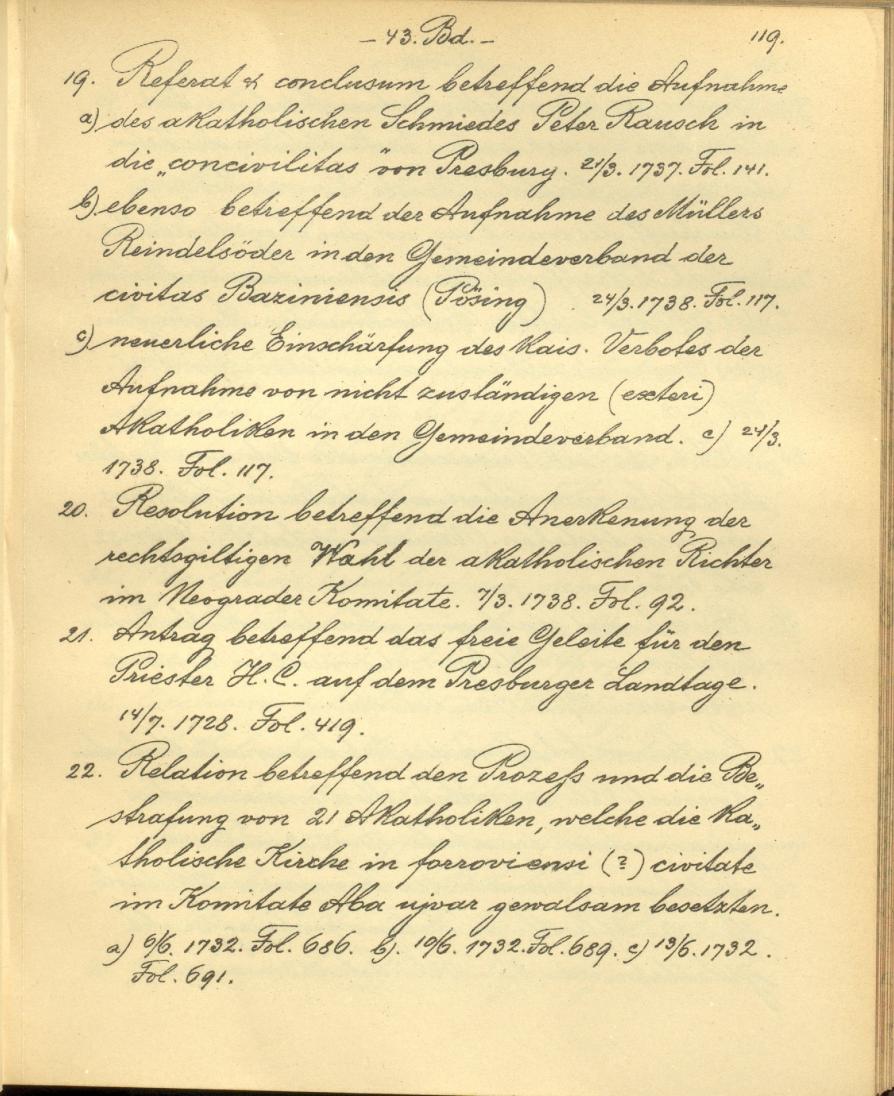 – 43. Bd. – 119.
19. Referat & conclusum betreffend die Aufnahme
a) des akatholischen Schmiedes Peter Rausch in
die „concivilitas“ von Presburg. 21/3. 1737. Fol. 141.
b) ebenso betreffend der Aufnahme des Müllers
Reindelsöder in den Gemeindeverband der
civitas Baziniensis (Pösing) 24/3. 1738. Fol. 117.
c) neuerliche Einschärfung des Kais. Verbotes der
Aufnahme von nicht zuständigen (exteri)
Akatholiken in den Gemeindeverband. c) 24/3.
1738. Fol. 117.
20. Resolution betreffend die Anerkenung der
rechtsgiltigen Wahl der akatholischen Richter
im Neograder Komitate. 7/3. 1738. Fol. 92.
21. Antrag betreffend das freie Geleite für den
Priester H. C. auf dem Presburger Landtage.
14/7. 1728. Fol. 419.
22. Relation betreffend den Prozeß und die Be„
strafung von 21 Akatholiken, welche die Ka„
tholische Kirche in forroviensi (?) civitate
im Komitate Aba ujvar gewalsam besetzten.
a) 6/6. 1732. Fol. 686. b). 10/6. 1732. Fol. 689. c) 13/6. 1732.
Fol. 691.